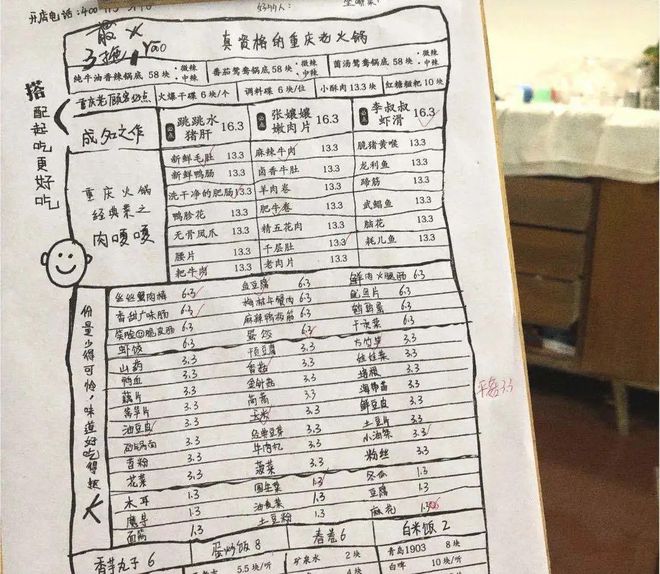 开店电话：400
最火
yao
真资格的重庆老火锅
纯牛油香辣锅底 58 块 · 微辣 · 中辣
番茄鸳鸯锅底 58 块 · 微辣 · 中辣
菌汤鸳鸯锅底 58 块 · 微辣 · 中辣
重庆老 点
火爆干碟 6块/个
调料碟 6块/位
小酥肉 13.3 块
红糖糍粑 10 块
搭配起吃更好吃
成名之作
跳跳水猪肝 16.3
张孃孃嫩肉片 16.3
李叔叔虾滑 16.3
重庆火锅经典菜之肉嘎嘎
新鲜毛肚 13.3 麻辣牛肉 13.3 脆猪黄喉 13.3
新鲜鸭肠 13.3 卤香牛肚 13.3 龙利鱼 13.3
洗干净的肥肠 13.3 羊肉卷 13.3 蹄筋 13.3
鸭胗花 13.3 肥牛卷 13.3 武昌鱼 13.3
无骨凤爪 13.3 精五花肉 13.3 脑花 13.3
腰片 13.3 千层肚 13.3 耗儿鱼 13.3
粑牛肉 13.3 老肉片 13.3
份量少得可怜！味道好吃得很大
丝丝蟹肉棒 6.3 鱼豆腐 6.3 鲜肉火腿肠 6.3
香甜广味肠 6.3 梅林午餐肉 6.3 鱿鱼片 6.3
笑脸 脆皮肠 6.3 麻辣鸭郡筋 6.3 鹌鹑蛋 6.3
虾饺 6.3 蛋饺 6.3 干贡菜 6.3
山药 3.3 千页豆腐 3.3 方竹笋 3.3
鸭血 3.3 香菇 3.3 娃娃菜 3.3
藕片 3.3 金针菇 3.3 3.3
莴笋片 3.3 茼蒿 3.3 海带苗 3.3
油豆皮 3.3 玉米 3.3 鲜豆皮 3.3
3.3 3.3 土豆片 3.3
苕粉 3.3 3.3 小油菜 3.3
花菜 3.3 菠菜 3.3 粉丝 3.3
木耳 1.3 圆生菜 1.3 冬瓜 1.3
魔芋 1.3 油麦菜 1.3 豆腐 1.3
面筋 1.3 土豆粉 1.3 麻花 1.3
平菇 3.3
香芋丸子 6
蛋炒饭 8
春卷 6
白米饭 2
5.5 块/听
矿泉水 2 块
青岛1903 8 块
4 块
白啤 10 块/听